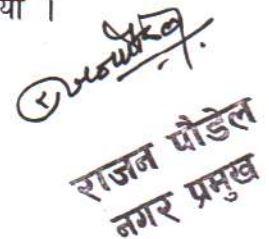 या ।
राजन पौडेल
नगर प्रमुख